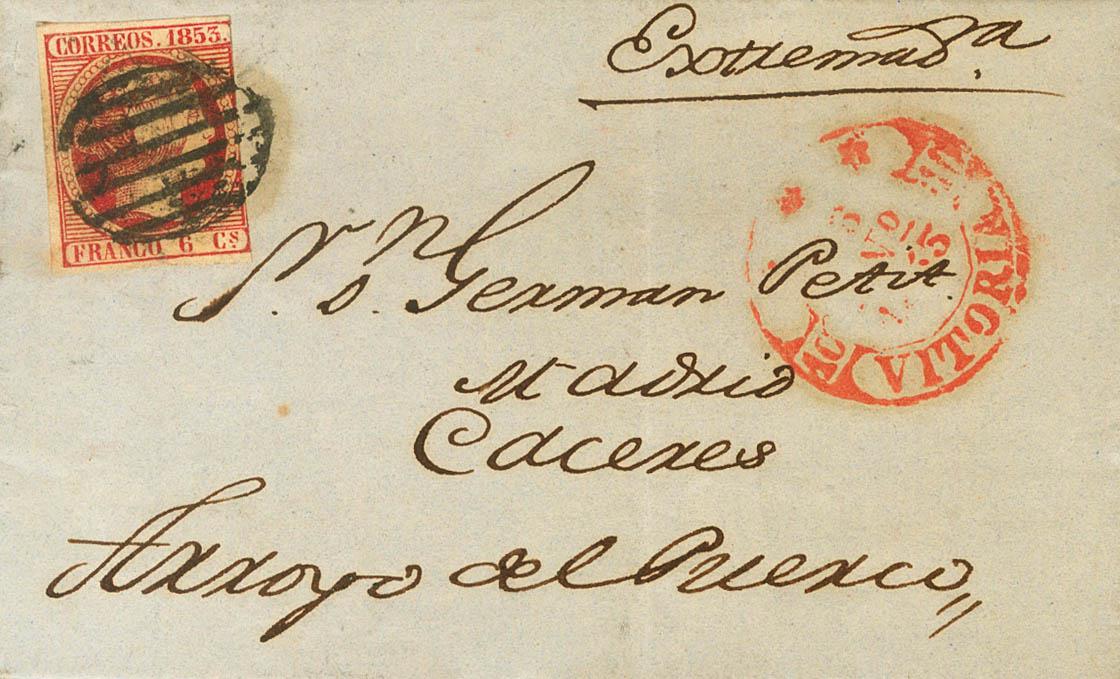 CORREOS. 1853.
FRANCO 6 Cs
Extremad.ª
Sr. Dn. German Petit.
Madrid
Caceres
Arroyo del Puerco
VITORIA